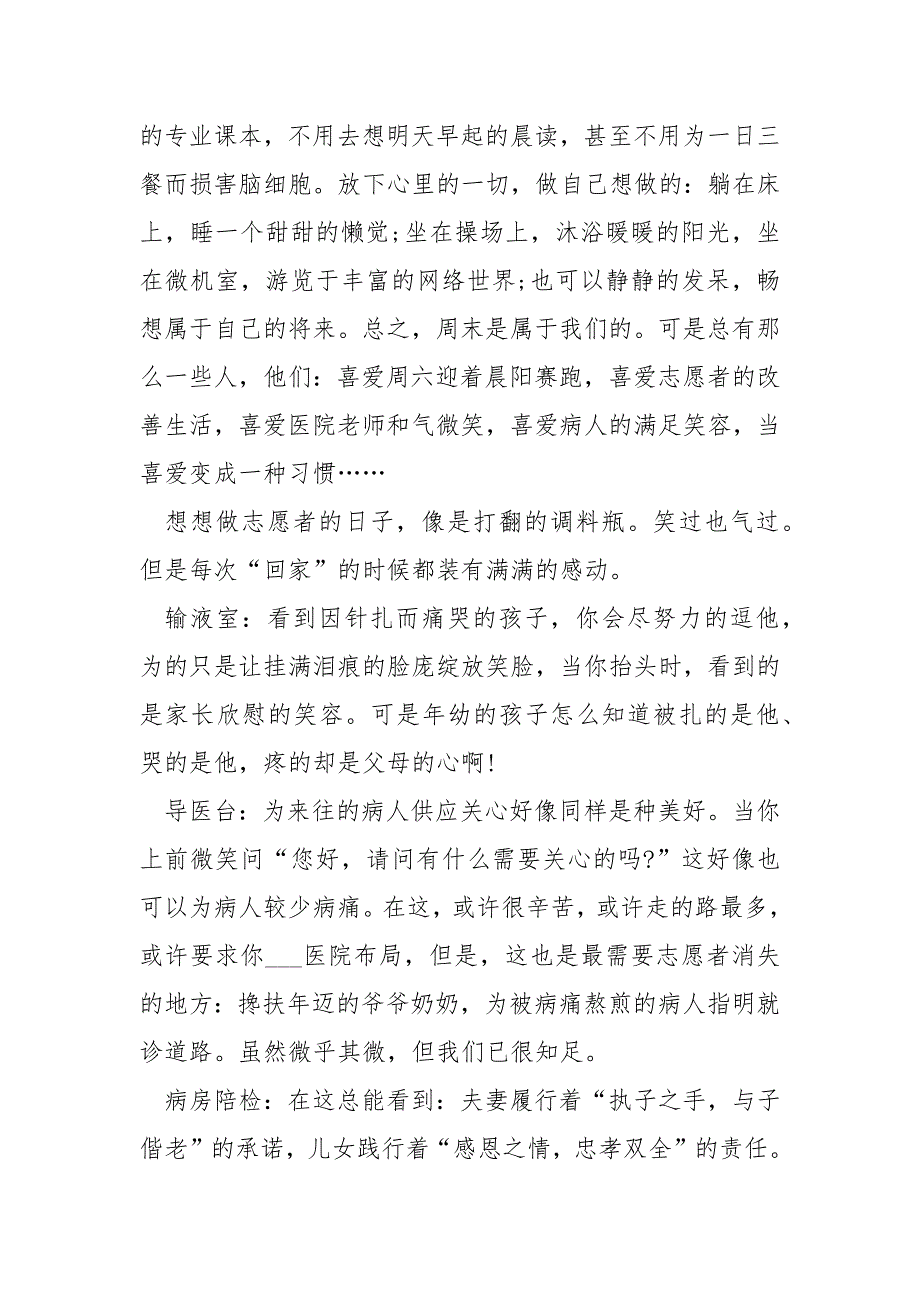 的专业课本，不用去想明天早起的晨读，甚至不用为一日三
餐而损害脑细胞。放下心里的一切，做自己想做的：躺在床
上，睡一个甜甜的懒觉;坐在操场上，沐浴暖暖的阳光，坐
在微机室，游览于丰富的网络世界;也可以静静的发呆，畅
想属于自己的将来。总之，周末是属于我们的。可是总有那
么一些人，他们：喜爱周六迎着晨阳赛跑，喜爱志愿者的改
善生活，喜爱医院老师和气微笑，喜爱病人的满足笑容，当
喜爱变成一种习惯……
想想做志愿者的日子，像是打翻的调料瓶。笑过也气过。
但是每次“回家”的时候都装有满满的感动。
输液室：看到因针扎而痛哭的孩子，你会尽努力的逗他，
为的只是让挂满泪痕的脸庞绽放笑脸，当你抬头时，看到的
是家长欣慰的笑容。可是年幼的孩子怎么知道被扎的是他、
哭的是他，疼的却是父母的心啊!
导医台：为来往的病人供应关心好像同样是种美好。当你
上前微笑问“您好，请问有什么需要关心的吗?”这好像也
可以为病人较少病痛。在这，或许很辛苦，或许走的路最多，
或许要求你___医院布局，但是，这也是最需要志愿者消失
的地方：搀扶年迈的爷爷奶奶，为被病痛熬煎的病人指明就
诊道路。虽然微乎其微，但我们已很知足。
病房陪检：在这总能看到：夫妻履行着“执子之手，与子
偕老”的承诺，儿女践行着“感恩之情，忠孝双全”的责任。